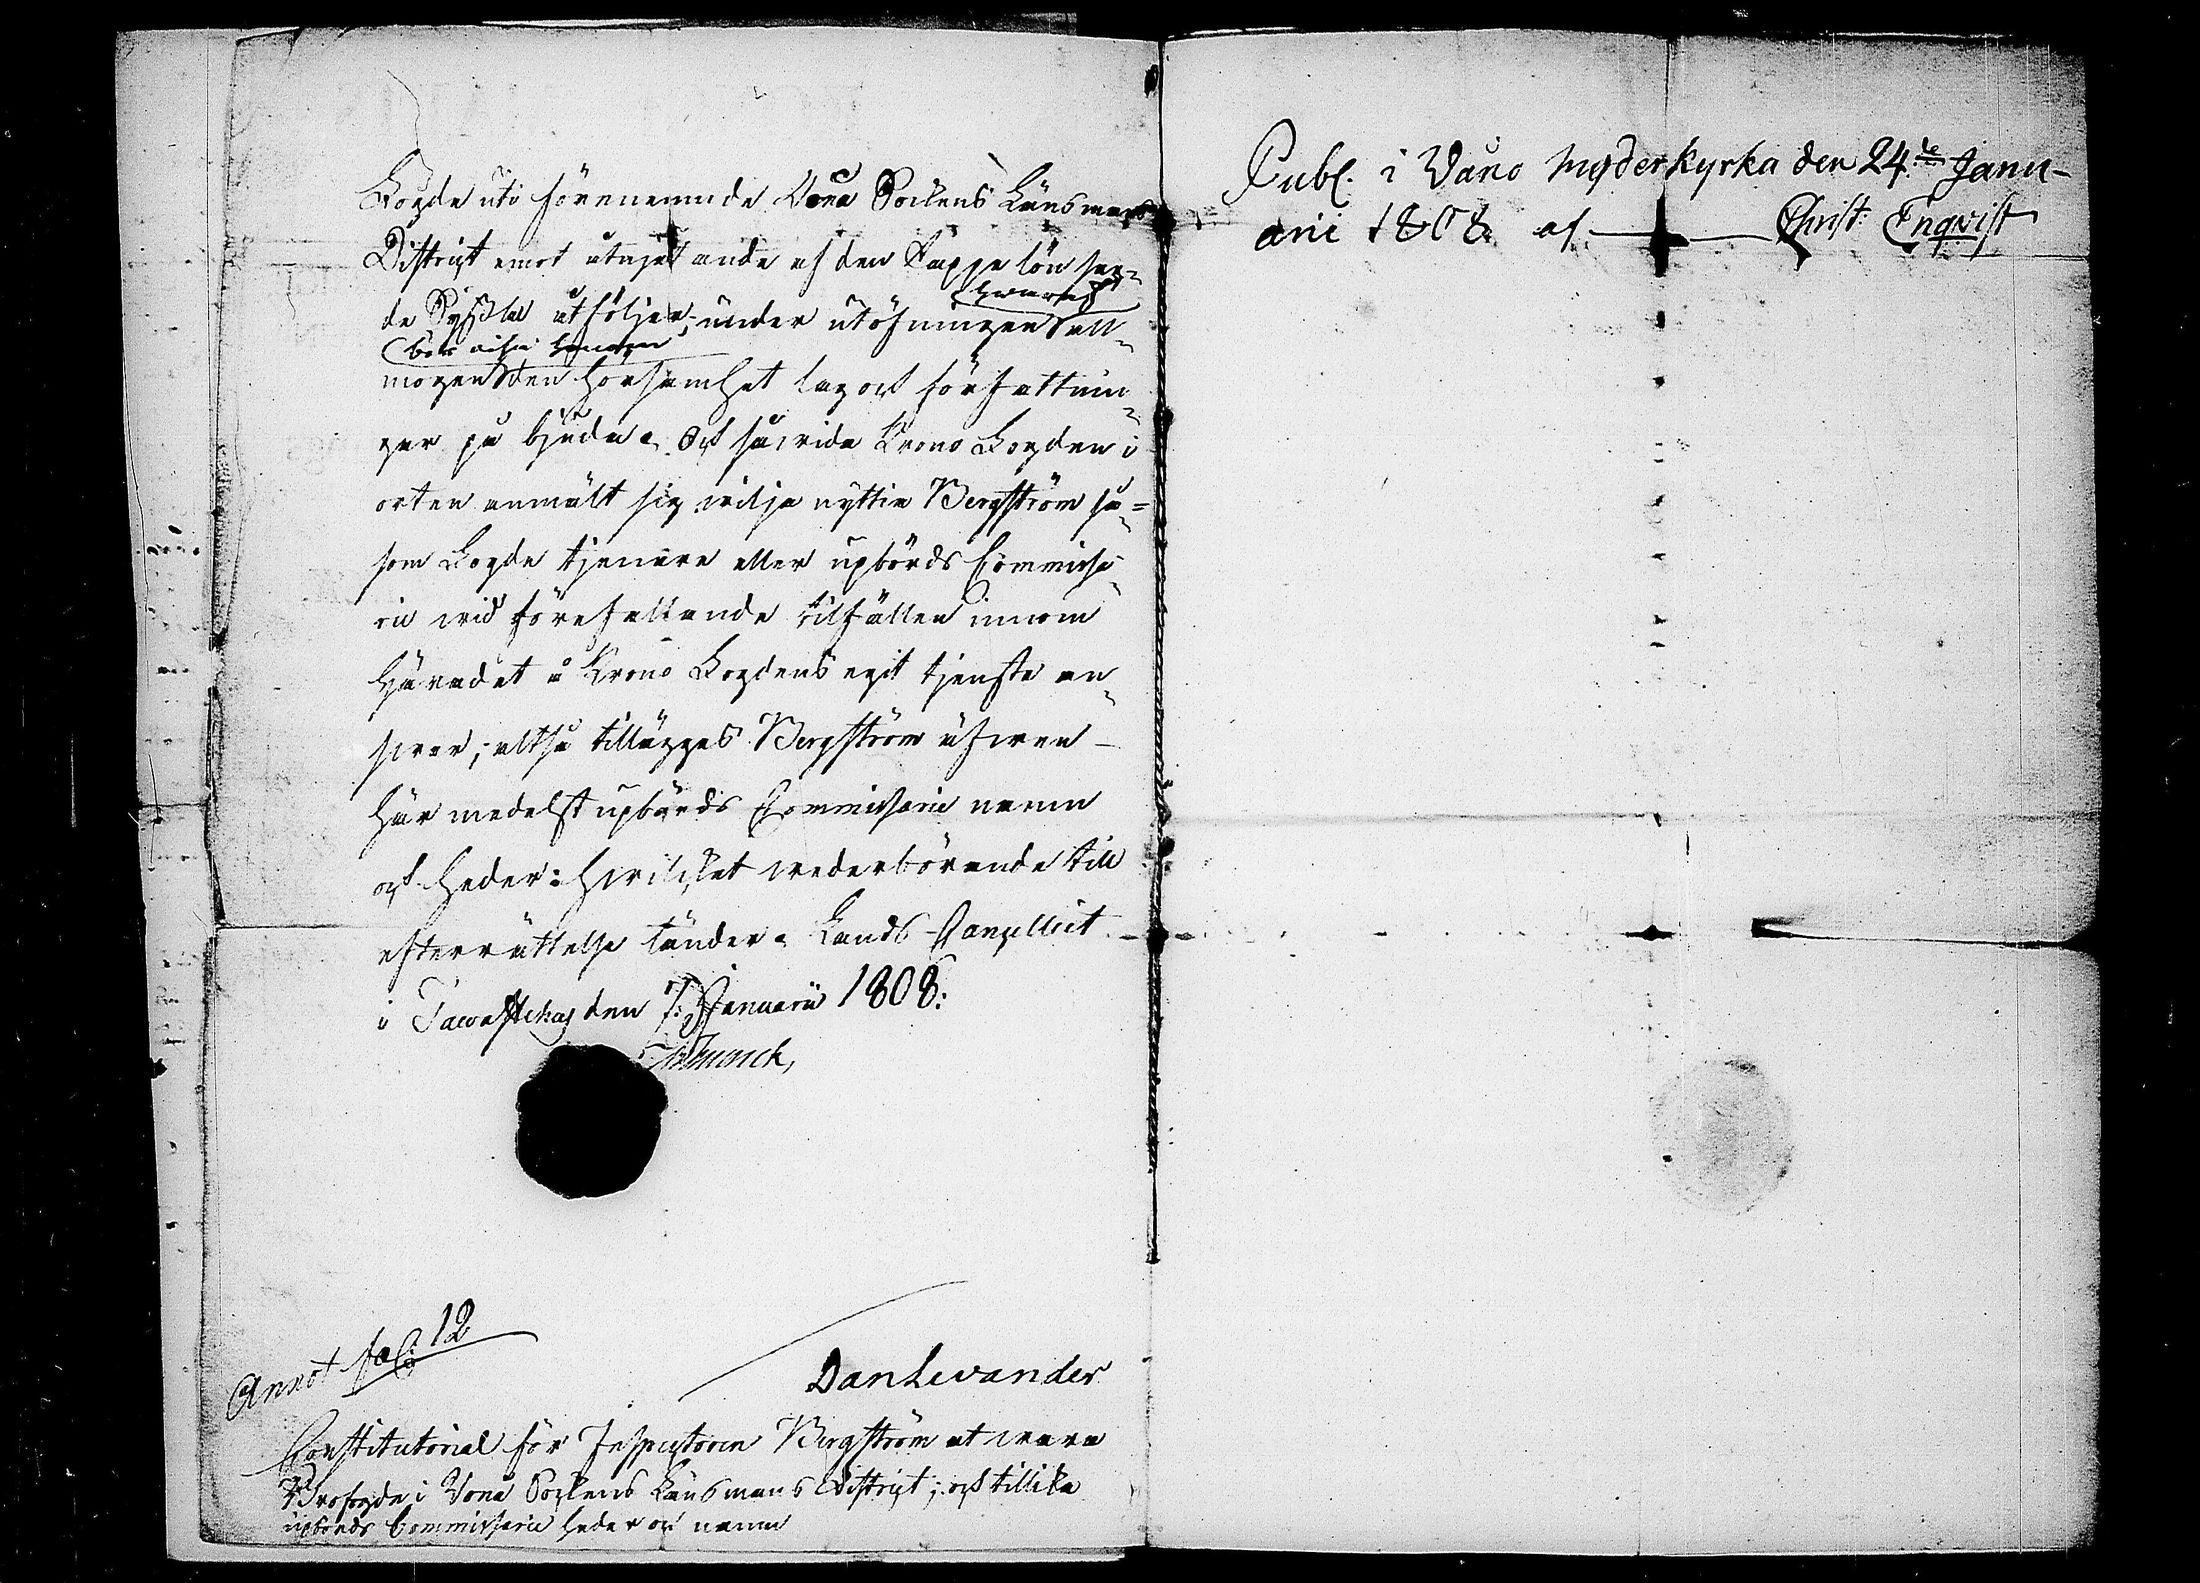 Fogde uti förenemnde Vånå Sockens Länsmans
District emot utnjutande af den Knappe lön sag-
de Syssla åtföljer; under utöfningen hwaraf all-
mogen bör wisa honom den hörsamhet lag och författnin-
gar på bjuda. Och såwida Krono Fogden i
orten anmält sig wilja nyttia Bergström så-
som Fogde tjenare eller upbörds Commissa-
rie wid förefallande tilfällen innom
Häradet å Krono Fogdens egit tjenste an-
swar; altså tillägges Bergström äfwen
här medelst upbörds Commissarie namn
och heder: hwilcket wederbörande till
efterrättelse länder. Lands Cancelliet
i Tawastehus den 7: Januarii 1808:
Munck,
Annot fol: 12
Dan Levander
Constitutorial för Inspectoren Bergström at wara
Brofogde i Vånå Sockens Länsmans District; och tillika
upbörds Commissarie heder och namn
Publ. i Wånå moderkyrka den 24:de Janu-
arii 1808. af Christ: Enqvist